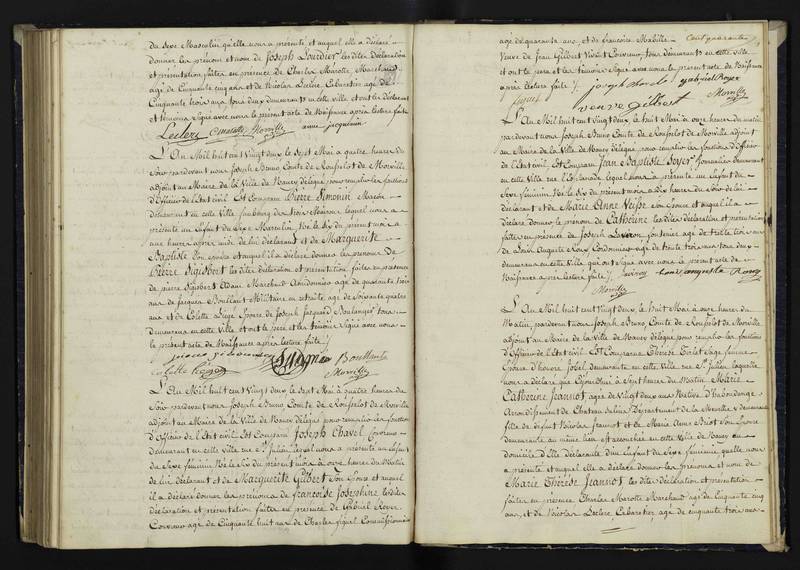 du sexe Masculin qu'elle nous a présenté et auquel elle a déclaré
donner les prénom et nom de Joseph Lourdier les dites déclaration
et présentation faites en présence de Charles Marotte Marchand
agé de Cinquante cinq ans et de Nicolas Leclerc Cabaretier agé de
Cinquante trois ans tous deux demeurants en cette ville et ont le déclarant
et témoins signé avec nous le présent acte de Naissance après lecture faite
Leclerc Marotte Morville anne jacquemin
L'An Mil huit cent Vingt deux le Sept Mai à quatre heures du
Soir pardevant nous Joseph Bruno Comte de Rousselot de Morville
adjoint au Maire de la Ville de Nancy délégué pour remplir les fonctions
d'Officier de l'Etat civil Est Comparu Pierre Simonin Maçon
demeurant en cette Ville faubourg des trois Maisons lequel nous a
présenté un Enfant du Sexe Masculin Né le six du présent mois à
une heure après midi de lui déclarant et de Marguerite
Baptiste Son épouse et auquel il a déclaré donner les prénoms de
Pierre Sigisbert les dites déclaration et présentation faites en présence
de pierre Sigisbert Adam Marchand agé de quarante trois
ans de Jacques Boullant Militaire en retraite agé de Soixante quatre
ans et de Colette Liégé Epouse de Joseph Jacquard Boulanger tous
demeurans en cette Ville et ont le père et les témoins Signé avec nous
le présent acte de Naissance après lecture faite
Boullant
Morville
L'An Mil huit cent Vingt deux le sept Mai à quatre heures du
Soir pardevant nous Joseph Bruno Comte de Rousselot de Morville
adjoint au Maire de la Ville de Nancy délégué pour remplir les fonctions
d'Officier de l'Etat civil Est Comparu Joseph Chavel Cordonnier
demeurant en cette Ville rue St. Julien lequel nous a présenté un Enfant
du Sexe féminin Né le six du présent mois à onze heures du Matin
de lui déclarant et de Marguerite Gilbert Son Epouse et auquel
il a déclaré donner les prénoms de Francoise Josephine les dites
déclaration et présentation faites en présence de Gabriel Royer
agé de Cinquante huit ans de Charles figuel Commissionnaire
Cent quarante
agé de quarante ans et de francoise Mabille
Veuve de Jean Gilbert Vivant tous demeurants en cette Ville
et ont le père et les témoins Signé avec nous le présent acte de Naissance
après lecture faite joseph gabriel Royer
veuve gilbert Morville
L'An Mil huit cent Vingt deux, le huit Mai à onze heures du matin,
pardevant nous Joseph Bruno Comte de Rousselot de Morville adjoint
au Maire de la Ville de Nancy délégué pour remplir les fonctions d'Officier
de l'Etat civil, Est Comparu Jean Baptiste Soyer Journalier demeurant
en cette Ville rue lequel nous a présenté un Enfant du
Sexe féminin Né le Six du présent mois à dix heures du Soir de lui
déclarant et de Marie Anne Veisse Son Epouse et auquel il a
déclaré donner le prénom de Catherine les dites déclaration et présentation
faites en présence de Joseph agé de trente trois ans
de Louis Auguste Roux Cordonnier agé de trente trois ans tous deux
demeurants en cette Ville qui ont signé avec nous le présent acte de
Naissance après lecture faite
Morville
L'An Mil huit cent Vingt deux, le huit Mai à onze heures du
Matin, pardevant nous Joseph Bruno, Comte de Rousselot de Morville,
adjoint au Maire de la Ville de Nancy délégué pour remplir les fonctions
d'Officier de l'Etat civil Est Comparue Thérèse Tirlet Sage femme
Epouse d'honoré Josel demeurante en cette Ville rue St. Julien laquelle
nous a déclaré que d'aujourd'hui à Sept heures du Matin Marie
Catherine Jeannot agée de Vingt deux ans Native d'haboudange
Arrondissement de Chateau Salins Département de la Meurthe y demeurante
fille de défunt Nicolas Jeannot et de Marie Anne Son Epouse
demeurante au même lieu est accouchée en cette Ville de Nancy au
domicile d'Elle Déclarante d'un Enfant du Sexe féminin, qu'elle nous
a présenté et auquel elle a déclaré donner les prénoms et nom de
Marie Thérèse Jeannot les dites déclaration et présentation
faites en présence Charles Marotte Marchand agé de Cinquante cinq
ans, et de Nicolas Leclerc, Cabaretier, agé de cinquante trois ans